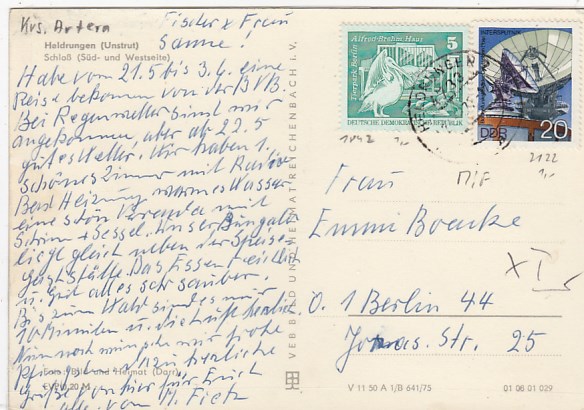 Krs. Artern
Fischer u Frau
Heldrungen (Unstrut)
Schloß (Süd- und Westseite)
Habe vom 21.5 bis 3.6. eine
Reise bekommen von der BVB.
Bei Regenwetter sind wir
angekommen, aber ab 22.5
gutes Wetter. Wir haben 1
schönes Zimmer mit Radio
Bad Heizung warmes Wasser
eine schön Veranda mit
Schirm + Sessel. Unser Bungalo
liegt gleich neben der Speise
gaststätte. Das Essen
u. gut alles sehr sauber.
Bis zum Wald sind es nur
10 Minuten u. die Luft herrlich.
Nun noch
herzliche
Grüße von hier für Euch
alle von H. Fietz
Foto: Bild und Heimat (Darr)
EVP 0,20 M
VEB BILD UND HEIMAT REICHENBACH i. V.
Alfred-Brehm-Haus
Tierpark Berlin
5
DEUTSCHE DEMOKRATISCHE REPUBLIK
HELDRUNGEN
INTERSPUTNIK
DDR
20
1842
2122
Frau
MiF
Emmi Boencke
XI
O. 1 Berlin 44
Jonas. Str. 25
V 11 50 A 1/B 641/75
01 08 01 029